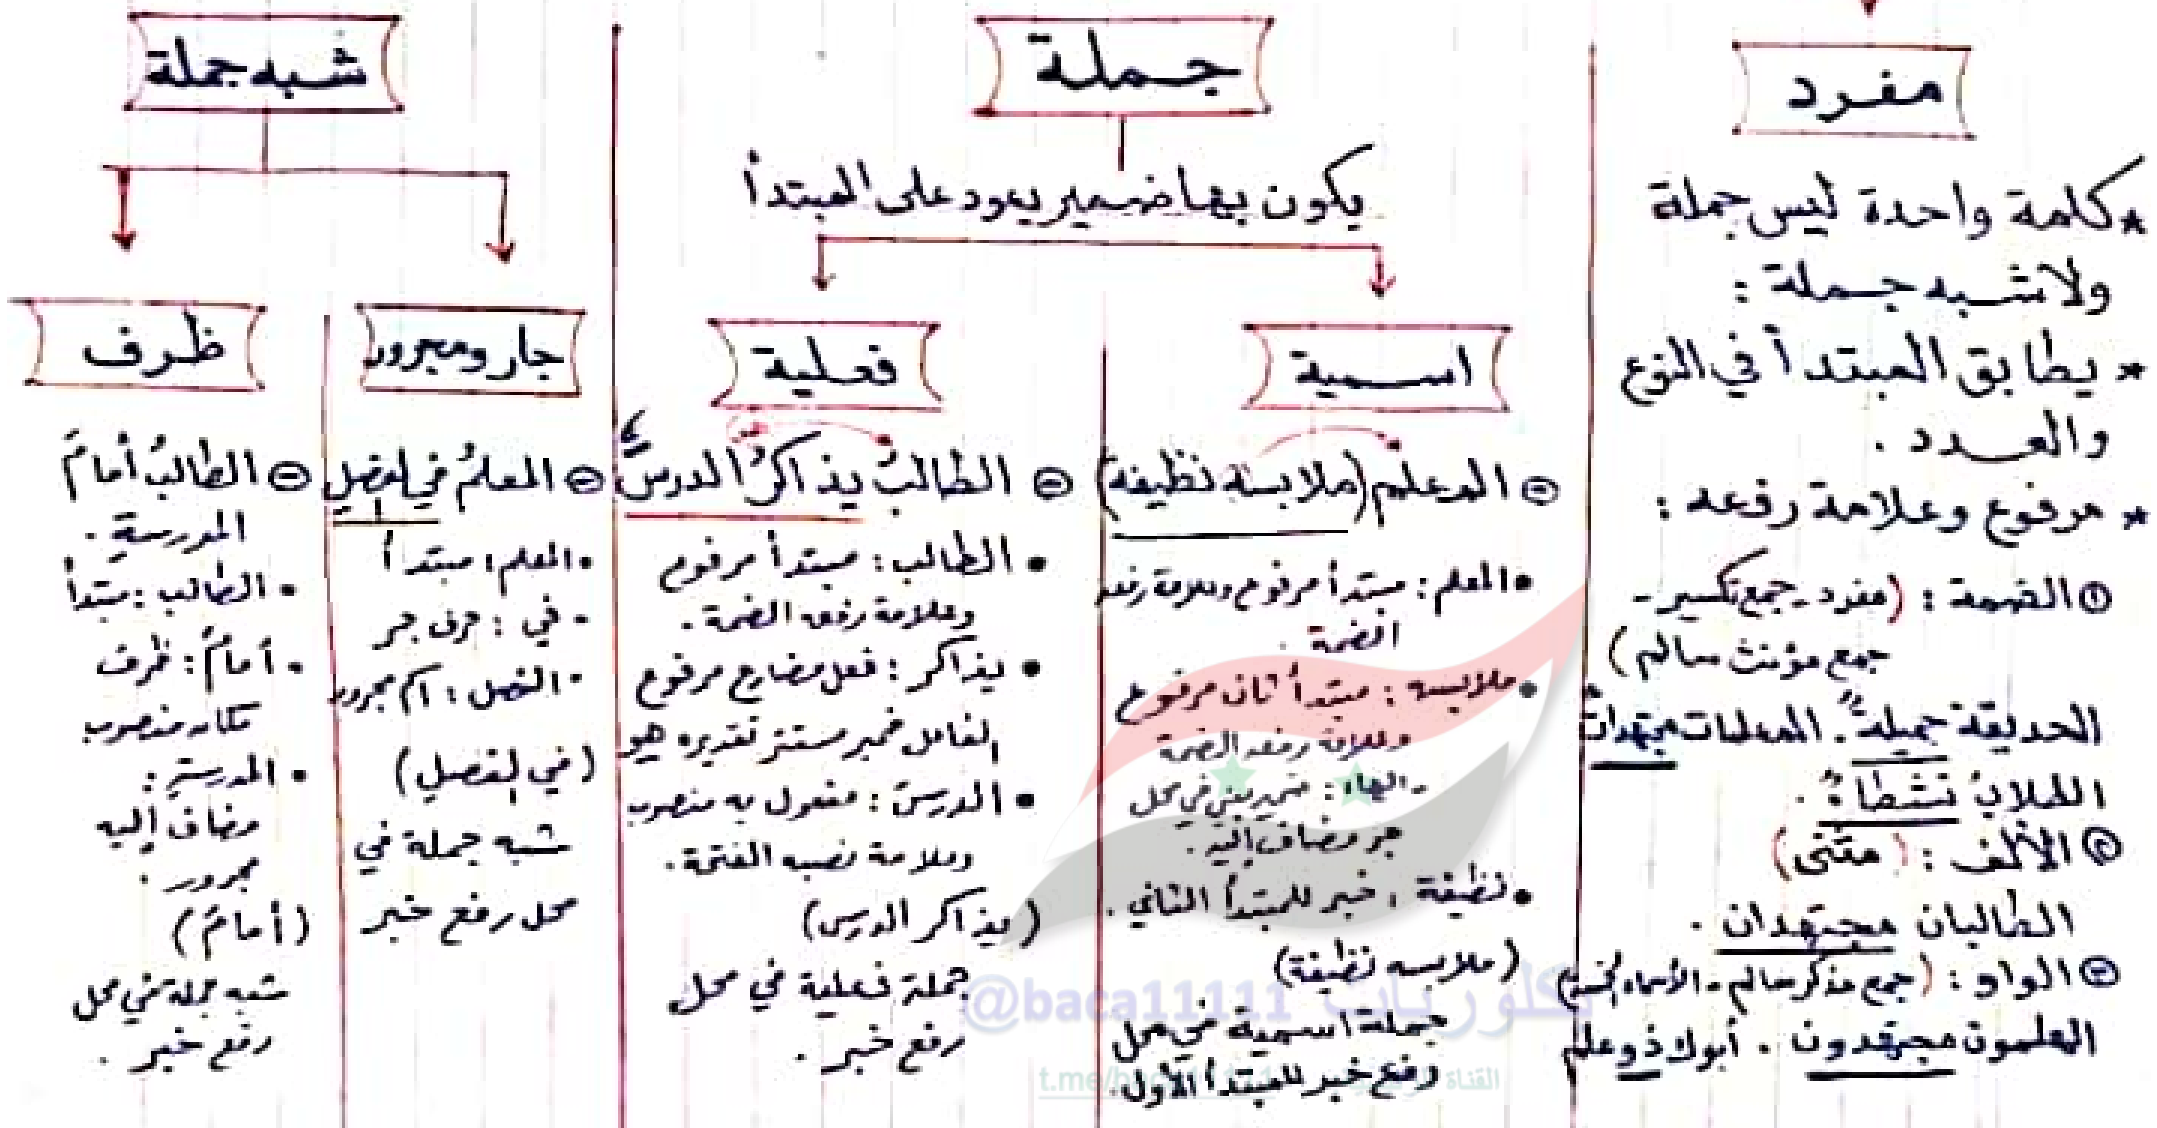 مفرد
* كلمة واحدة ليس جملة
ولا شبه جملة :
* يطابق المبتدأ في النوع
والعدد .
* مرفوع وعلامة رفعه :
① الضمة : (مفرد - جمع تكسير -
جمع مؤنث سالم)
الحديقة جميلةٌ . المعلمات مجتهداتٌ
الطلابُ نشطاءُ .
② الألف : (مثنى)
الطالبان مجتهدان .
③ الواو : (جمع مذكر سالم - الأسماء الخمسة)
المعلمون مجتهدون . أبوك ذو علم
جملة
يكون بها ضمير يعود على المبتدأ
اسمية
⊖ المعلم (ملابسه نظيفة)
• المعلم : مبتدأ مرفوع وعلامة رفعه
الضمة .
• ملابسه : مبتدأ ثان مرفوع
وعلامة رفعه الضمة
- الهاء : ضمير مبني في محل
جر مضاف إليه .
• نظيفة : خبر للمبتدأ الثاني .
(ملابسه نظيفة)
جملة اسمية في محل
رفع خبر للمبتدأ الأول .
فعلية
⊖ الطالبُ يذاكرُ الدرسَ
• الطالب : مبتدأ مرفوع
وعلامة رفعه الضمة .
• يذاكر : فعل مضارع مرفوع
الفاعل ضمير مستتر تقديره هو
• الدرسَ : مفعول به منصوب
وعلامة نصبه الفتحة .
(يذاكر الدرس)
جملة فعلية في محل
رفع خبر .
شبه جملة
جار ومجرور
⊖ المعلمُ في الفصلِ
• المعلم : مبتدأ
• في : حرف جر
• الفصل : اسم مجرور
(في الفصل)
شبه جملة في
محل رفع خبر
ظرف
⊖ الطالبُ أمامَ
المدرسةِ .
• الطالب : مبتدأ
• أمامَ : ظرف
مكان منصوب
• المدرسةِ :
مضاف إليه
مجرور .
(أمامَ)
شبه جملة في محل
رفع خبر .
@baca11111 بكلوريات
القناة